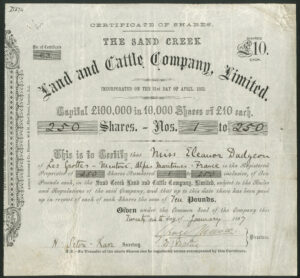 CERTIFICATE OF SHARES.
No. of Certificate
THE SAND CREEK
£10.
EACH.
Land and Cattle Company, Limited.
INCORPORATED ON THE 21ST DAY OF APRIL, 1882.
Capital £100,000 in 10,000 Shares of £10 each.
250 Shares. — Nos. 1 to 250
This is to Certify that Miss Eleanor Dudgeon
of Les Grottes - Menton, Alpes Maritimes - France is the Registered
Proprietor of 250 Shares Numbered 1 to 250 inclusive, of Ten
Pounds each, in the Sand Creek Land and Cattle Company, Limited, subject to the Rules
and Regulations of the said Company, and that up to this date there has been paid
up in respect of each of such Shares the sum of Ten Pounds.
Given under the Common Seal of the Company this
Twenty sixth day of January 1887
Directors.
Secretary.
N.B.—No Transfer of the above Shares can be registered unless accompanied by this Certificate.